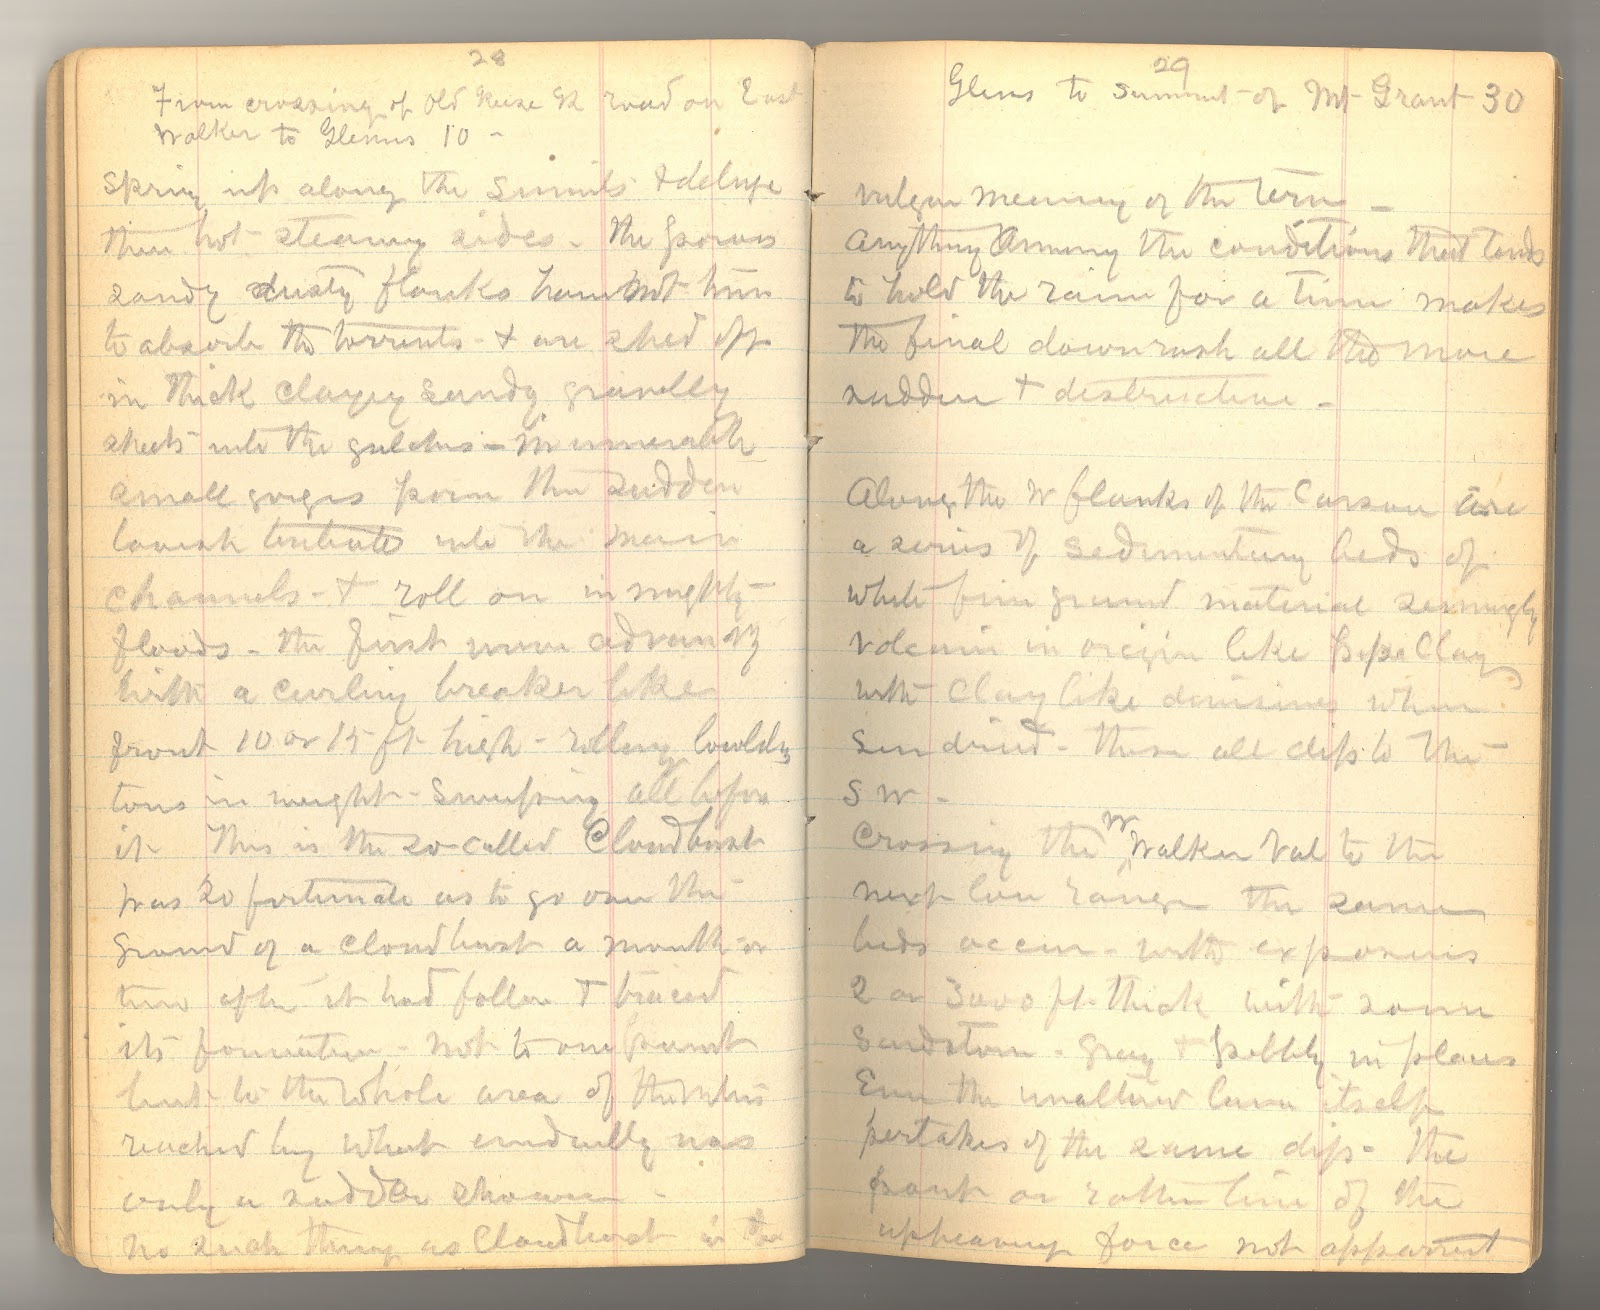 28
From crossing of Old Reese Rk road on East
Walker to Glenns 10 -
Spring up along the summits & deluge
their hot steamy sides - the porous
sandy dusty flanks have not time
to absorb the torrents - & are shed off
in thick clayey sandy gravelly
sheets into the gulches - innumerable
small gorges pour their sudden
lavish tribute into the main
channels - & roll on in mighty
floods - the first wave advancing
with a curling breaker like
front 10 or 15 ft high - rolling boulders
tons in weight - sweeping all before
it This is the so-called Cloudburst
was so fortunate as to go over the
ground of a cloudburst a month or
two after it had fallen & traced
its formation - not to one point
but to the whole area of the
reached by what evidently was
only a sudden shower -
No such thing as Cloudburst in the
29
Glenns to summit of Mt Grant 30
vulgar meaning of the term -
Anything among the conditions that tends
to hold the rain for a time makes
the final downrush all the more
sudden & destructive -
Along the W flanks of the Carson are
a series of sedimentary beds of
white fine ground material seemingly
volcanic in origin like pipe Clay
with Clay like divisions when
sun dried - these all dip to the
S W -
Crossing the W Walker Val to the
next low range the same
beds occur - with exposures
2 or 3000 ft thick with some
Sandstone - gray & pebbly in places
Even the unaltered lava itself
pertakes of the same dip - The
point or rotten line of the
upheaving force not apparent